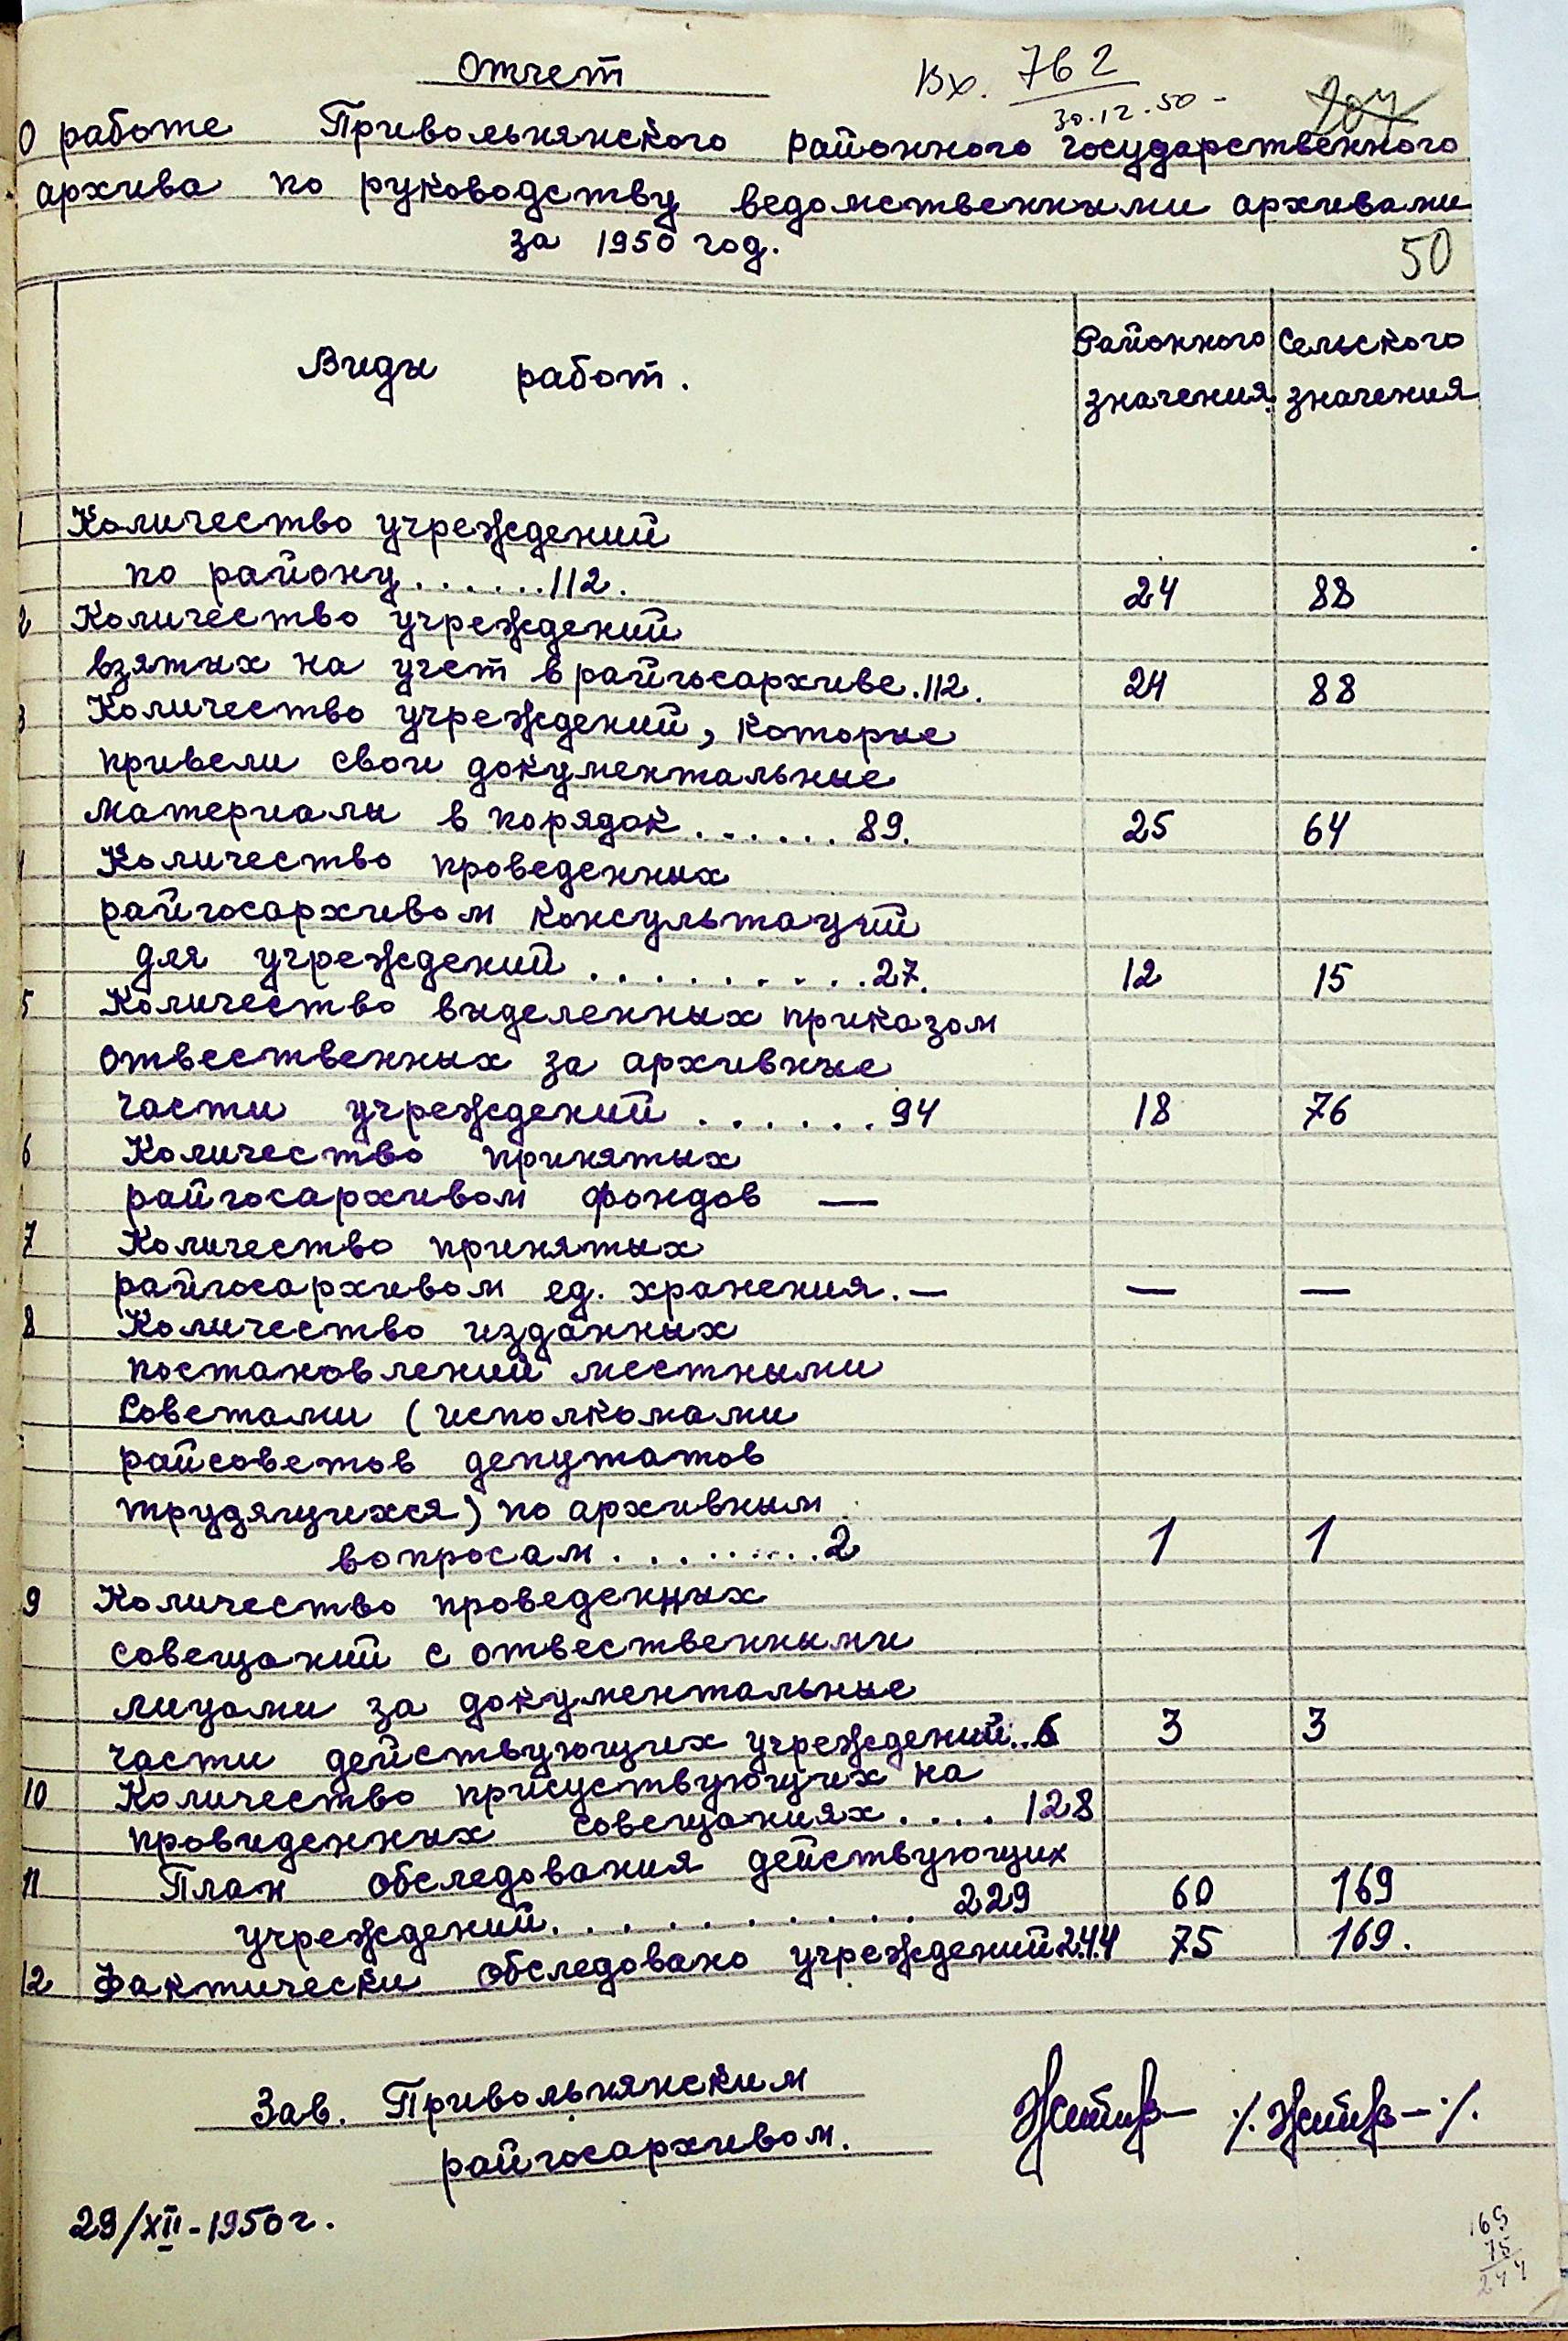 Отчет
Вх. 762
30.12.50-
204
О работе Привольнянского Районного государственного
архива по руководству ведомственными архивами
за 1950 год.
50
Виды работ.
Районного значения.
Сельского значения
1 Количество учреждений
по району.......112. 24 88
2 Количество учреждений
взятых на учет в райгосархиве.112. 24 88
3 Количество учреждений, которые
привели свои документальные
материалы в порядок.......89. 25 64
4 Количество проведенных
райгосархивом консультаций
для учреждений..........27. 12 15
5 Количество выделенных приказом
отвественных за архивные
части учреждений.......94 18 76
6 Количество принятых
райгосархивом фондов —
7 Количество принятых
райгосархивом ед. хранения.— — —
8 Количество изданных
постановлений местными
Советами (исполкомами
райсоветов депутатов
трудящихся) по архивным
вопросам.........2 1 1
9 Количество проведенных
совещаний с отвественными
лицами за документальные
части действующих учреждений..6 3 3
10 Количество присуствующих на
провиденных совещаниях....128
11 План обследования действующих
учреждений........... 229 60 169
12 Фактически обследовано учреждений 244 75 169.
Зав. Привольнянским
райгосархивом.
29/XII-1950г.
169
75
244